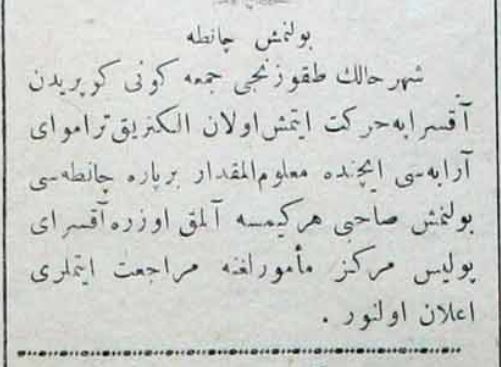 بولنمش چانطه
شهر حالك طقوزنجی جمعه كونی كوپریدن
آقسرایه حركت ایتمش اولان الكتریق تراموای
آرابه‌سی ایچنده معلوم‌المقدار برپاره چانطه‌سی
بولنمش صاحبی هركیمسه آلمق اوزره آقسرای
پولیس مركز مأمورلغنه مراجعت ایتملری
اعلان اولنور .